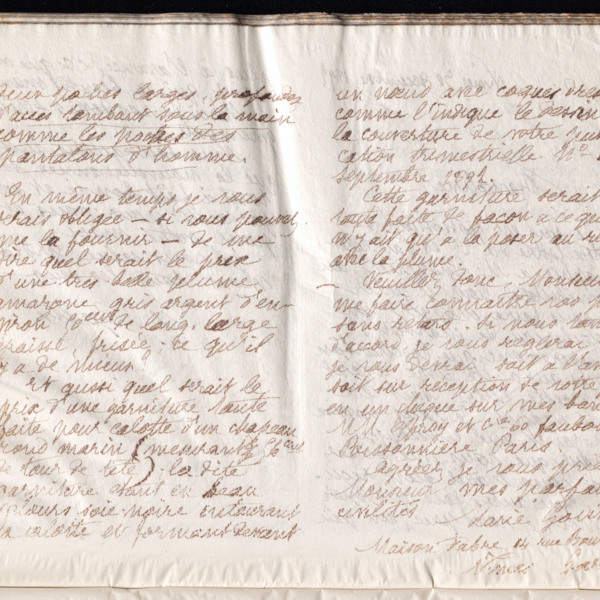 deux poches larges, profondes
d'accès tombant sous la main
comme les poches des
pantalons d'homme.
En même temps je vous
serais obligée – si vous pouvez
me la fournir – de me
dire quel serait le prix
d'une très belle plume
amazone gris argent d'en-
viron 50 cm de long. large
épaisse, frisée. ce qu'il
y a de mieux.
Et aussi quel serait le
prix d'une garniture toute
faite pour calotte d'un chapeau
rond marin (mesurant 56 cm
de tour de tête). la dite
garniture étant en beau
velours soie noire entourant
la calotte et formant devant
un nœud avec coques
comme l'indique le dessin
la couverture de votre
cation trimestrielle No
Septembre 1891.
Cette garniture serait
toute faite de façon à ce qu
n'y ait qu'à la poser au
avec la plume.
– Veuillez donc, Monsieur
me faire connaître vos
sans retard. si nous
d'accord je vous réglerai
je vous devrai soit à l'a
soit sur réception de votre
en un chèque sur mes
MM. Offroy et Cie 60 faubou
Poissonnière Paris
agréez je vous
Monsieur mes parfai
civilités
Marie
Maison Fabre 14 rue
Nimes